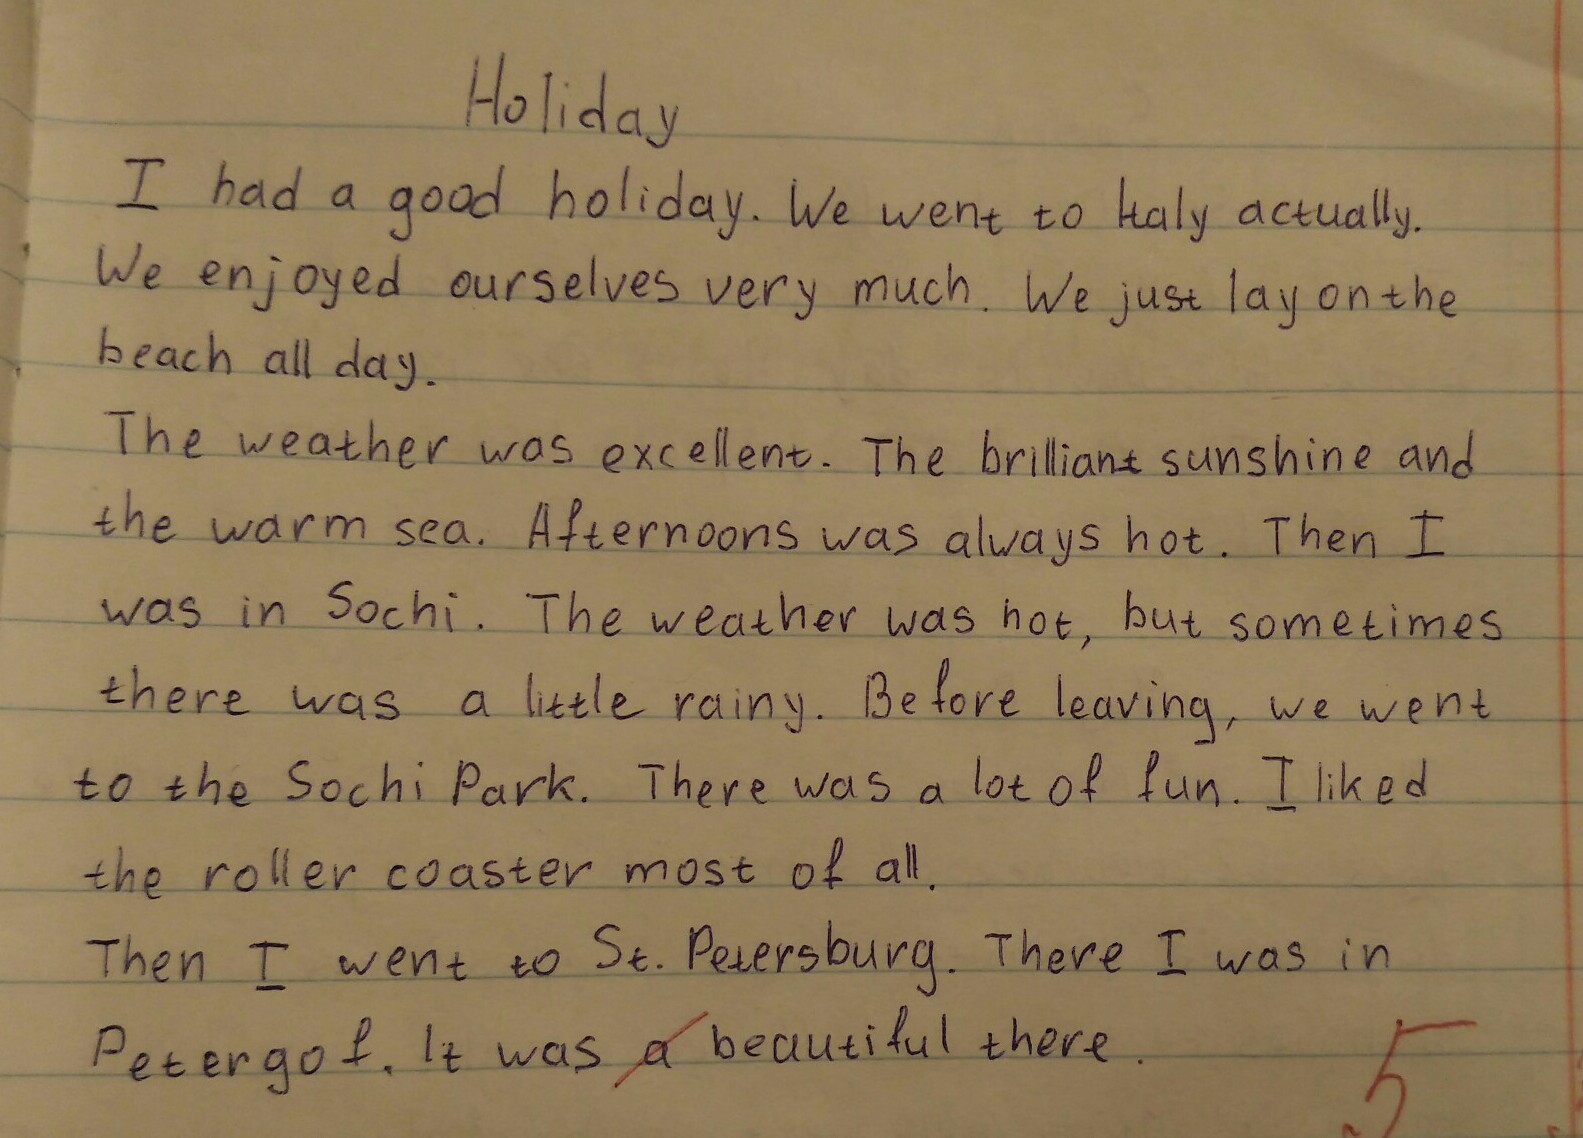 Holiday
I had a good holiday. We went to Italy actually.
We enjoyed ourselves very much. We just lay on the
beach all day.
The weather was excellent. The brilliant sunshine and
the warm sea. Afternoons was always hot. Then I
was in Sochi. The weather was hot, but sometimes
there was a little rainy. Before leaving, we went
to the Sochi Park. There was a lot of fun. I liked
the roller coaster most of all.
Then I went to St. Petersburg. There I was in
Petergof. It was a beautiful there.
5